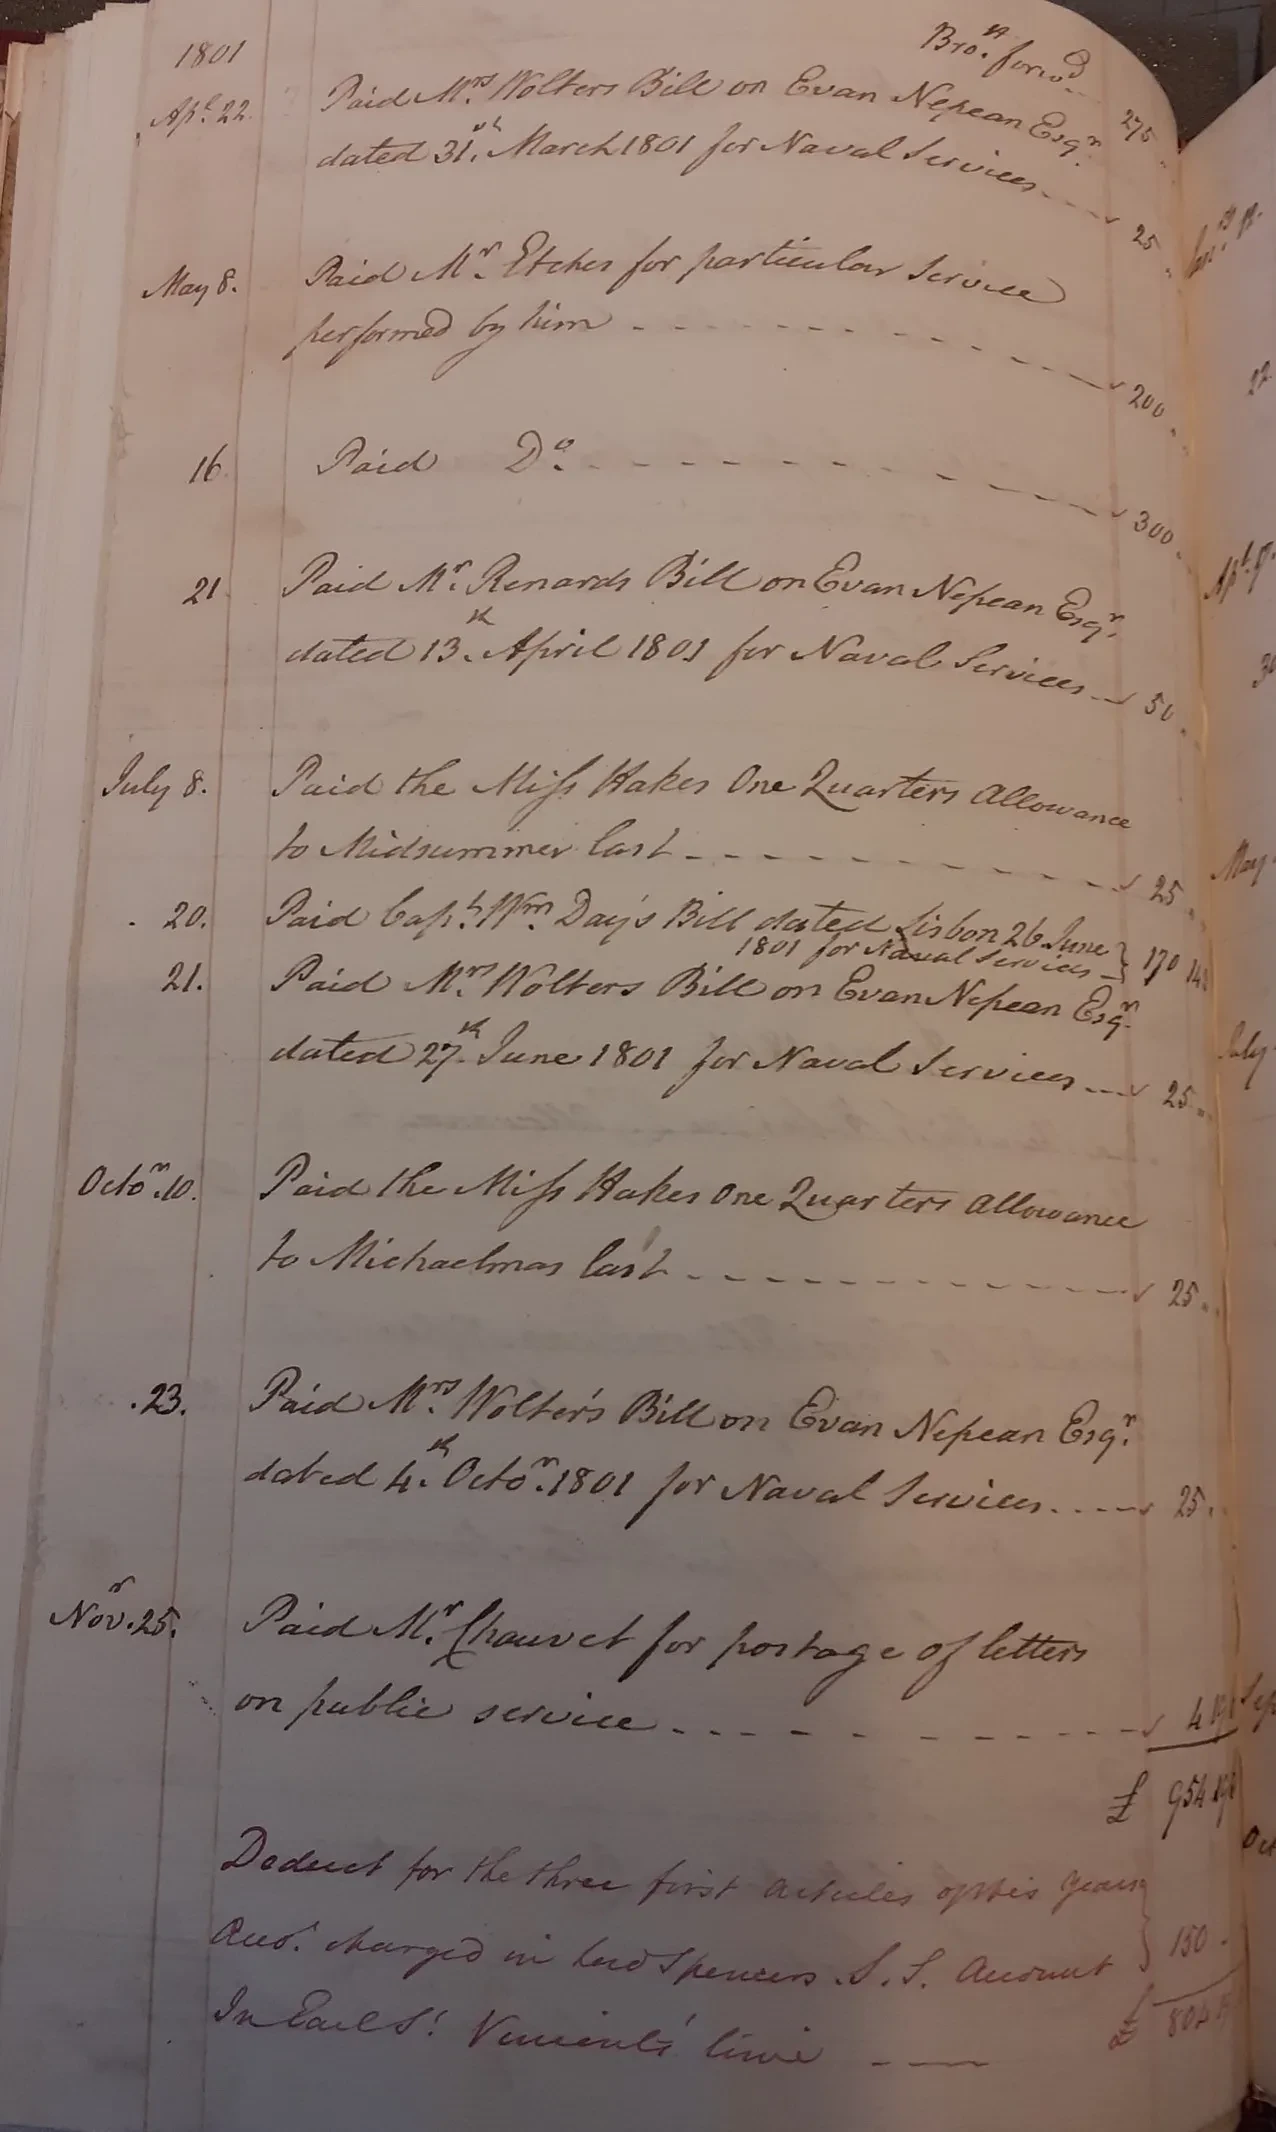 1801
Bro.t forw.d 275
Ap.l 22. Paid M.rs Wolters Bill on Evan Nepean Esq.r
dated 31.st March 1801 for Naval Services 25
May 8. Paid M.r Etches for particular Service
performed by him 200
16 Paid D.o 300
21 Paid M.r Renards Bill on Evan Nepean Esq.r
dated 13.th April 1801 for Naval Services 50
July 8. Paid the Miss Hakes One Quarters Allowance
to Midsummer last 25
20. Paid Cap.t W.m Day's Bill dated Lisbon 26 June
1801 for Naval Services } 170 14
21. Paid M.rs Wolters Bill on Evan Nepean Esq.r
dated 27.th June 1801 for Naval Services 25
Octo.r 10. Paid the Miss Hakes One Quarters allowance
to Michaelmas last 25
23. Paid M.rs Wolter's Bill on Evan Nepean Esq.r
dated 4.th Octo.r 1801 for Naval Services 25
Nov.r 25. Paid M.r Chauvet for postage of letters
on public service 4
£ 954
Deduct for the three first articles of this years
Acco.t charged in Lord Spencers S. S. Account } 150
In Earl S.t Vincents' time £ 804